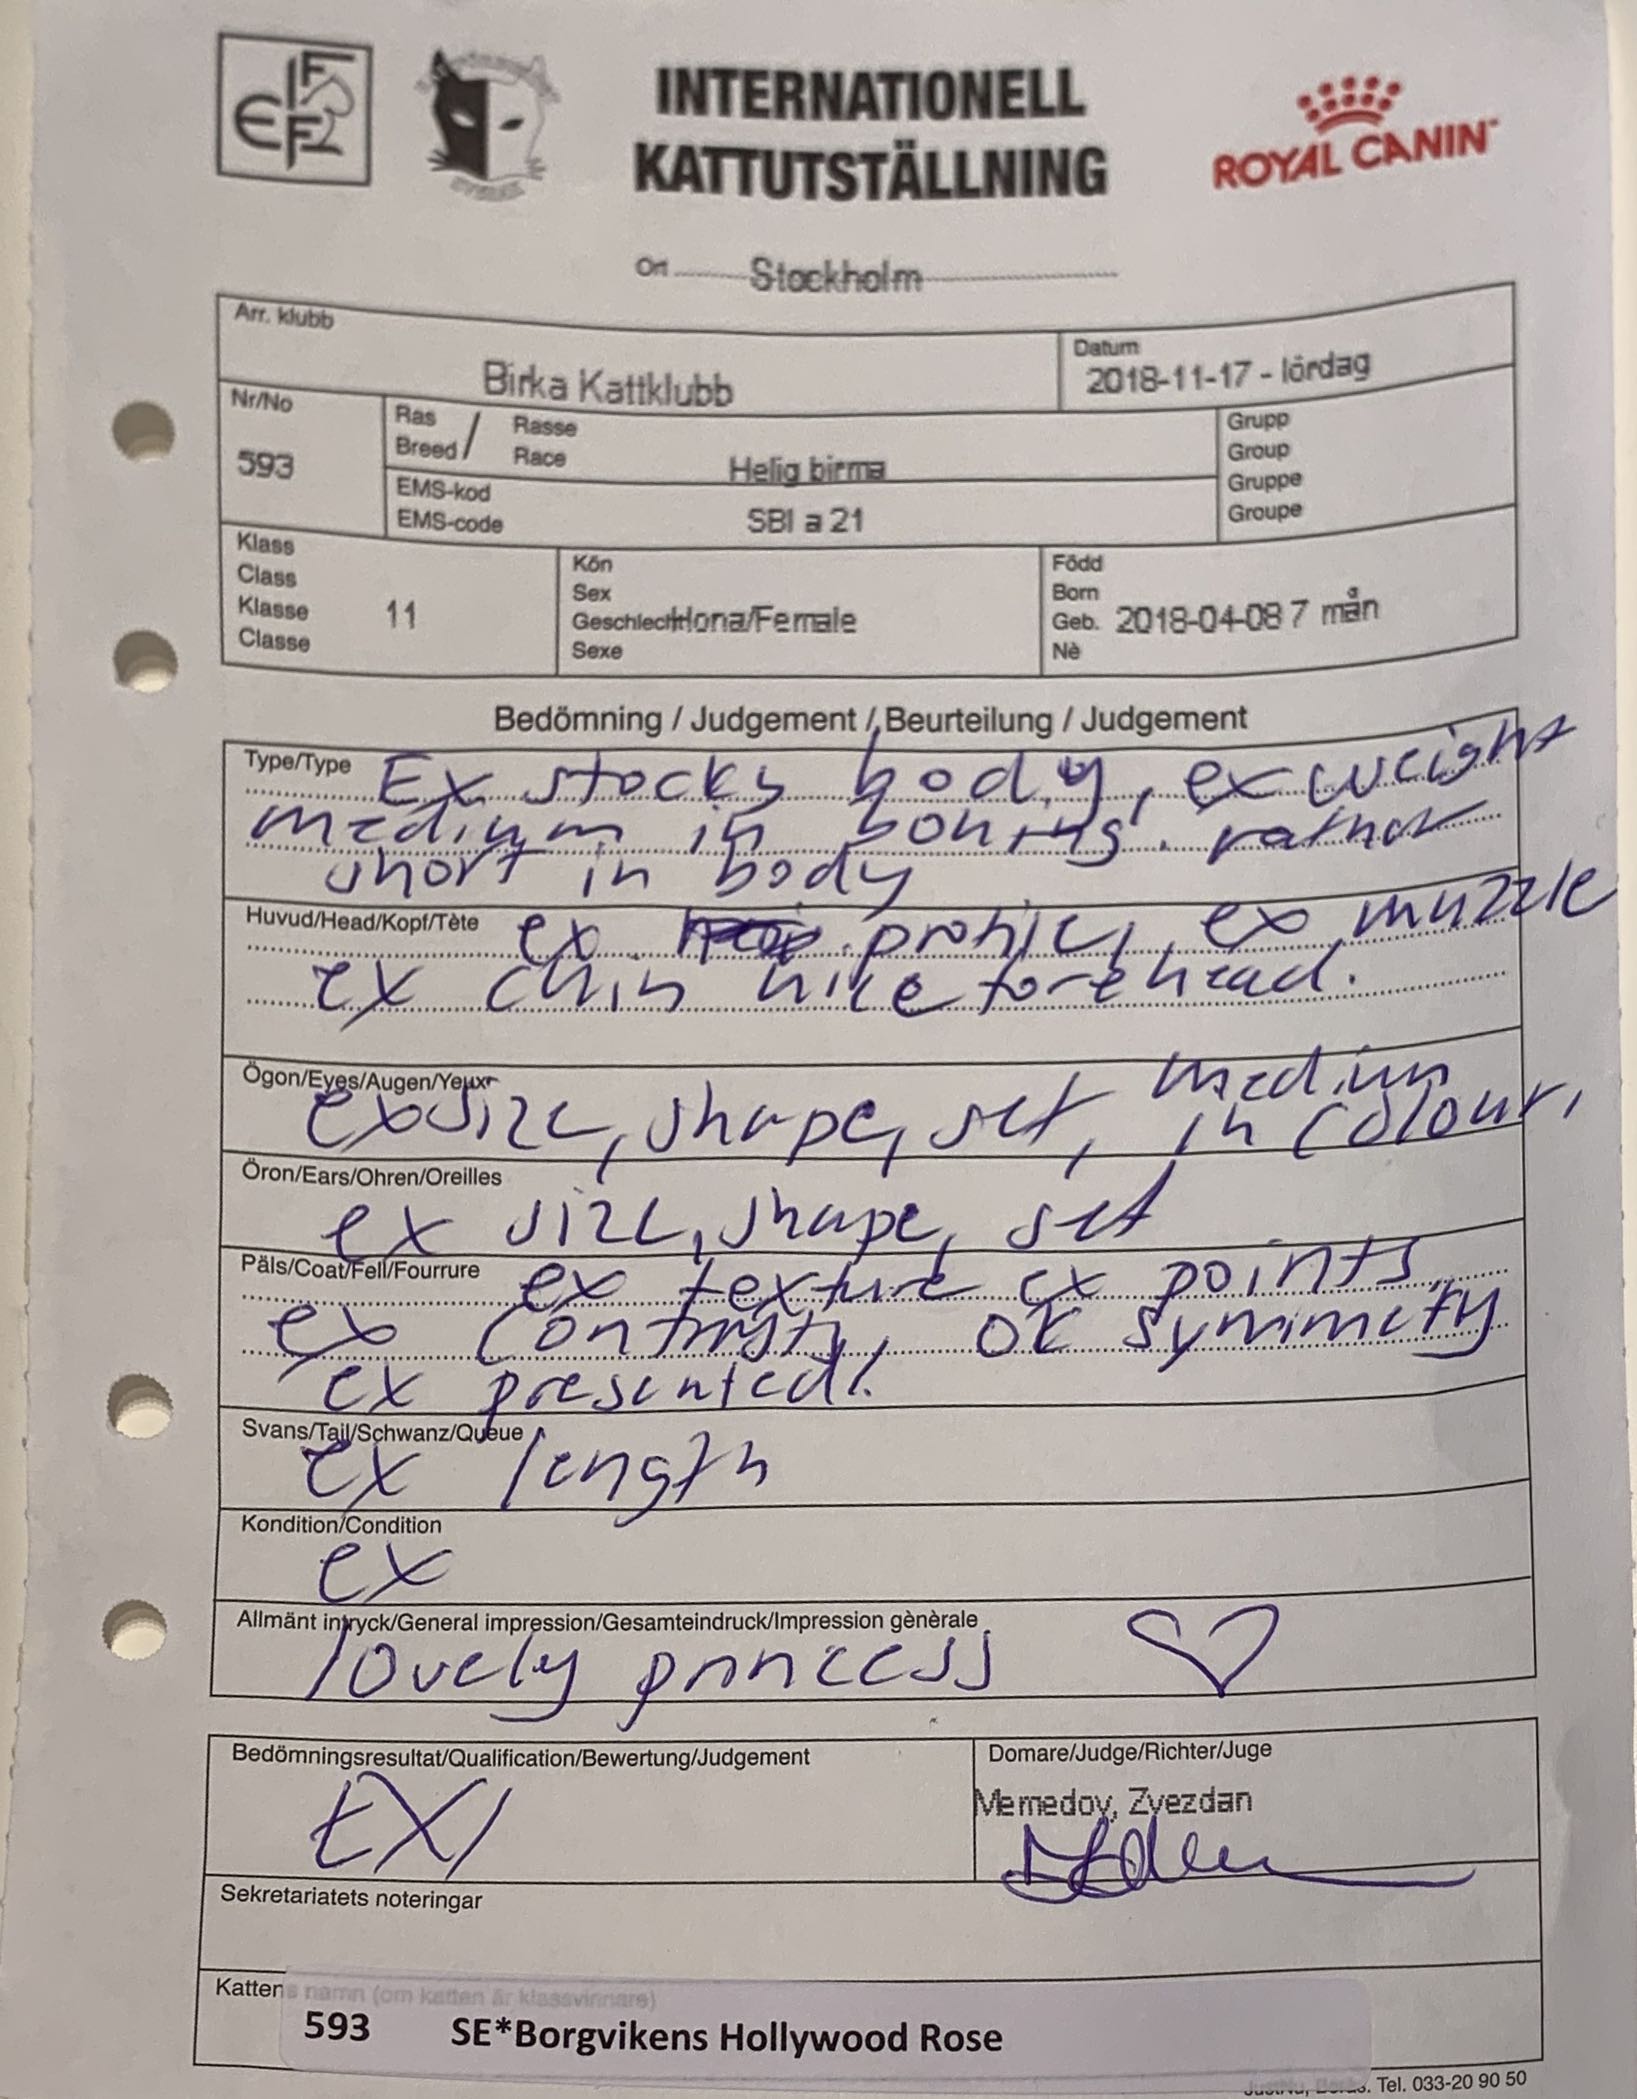 FIFe
INTERNATIONELL
KATTUTSTÄLLNING
ROYAL CANIN
Ort Stockholm
Arr. klubb
Birka Kattklubb
Datum
2018-11-17 - lördag
Nr/No
593
Ras Rasse
Breed / Race
Helig birma
EMS-kod
EMS-code
SBI a 21
Grupp
Group
Gruppe
Groupe
Klass
Class
Klasse
Classe
11
Kön
Sex
Geschlecht Hona/Female
Sexe
Född
Born
Geb. 2018-04-08 7 mån
Nè
Bedömning / Judgement / Beurteilung / Judgement
Type/Type Ex stocky body, ex weight
medium in boning. rather
short in body
Huvud/Head/Kopf/Tète ex profile, ex muzzle
ex chin nice forehead.
Ögon/Eyes/Augen/Yeux
ex size, shape, set, medium
in colour,
Öron/Ears/Ohren/Oreilles
ex size, shape, set
Päls/Coat/Fell/Fourrure ex texture ex points
ex contrast, ok symmetry
ex presented!
Svans/Tail/Schwanz/Queue
ex length
Kondition/Condition
ex
Allmänt intryck/General impression/Gesamteindruck/Impression gènèrale
lovely princess
Bedömningsresultat/Qualification/Bewertung/Judgement
EX1
Domare/Judge/Richter/Juge
Memedov, Zvezdan
Sekretariatets noteringar
Kattens namn (om katten är klassvinnare)
593 SE*Borgvikens Hollywood Rose
Tel. 033-20 90 50